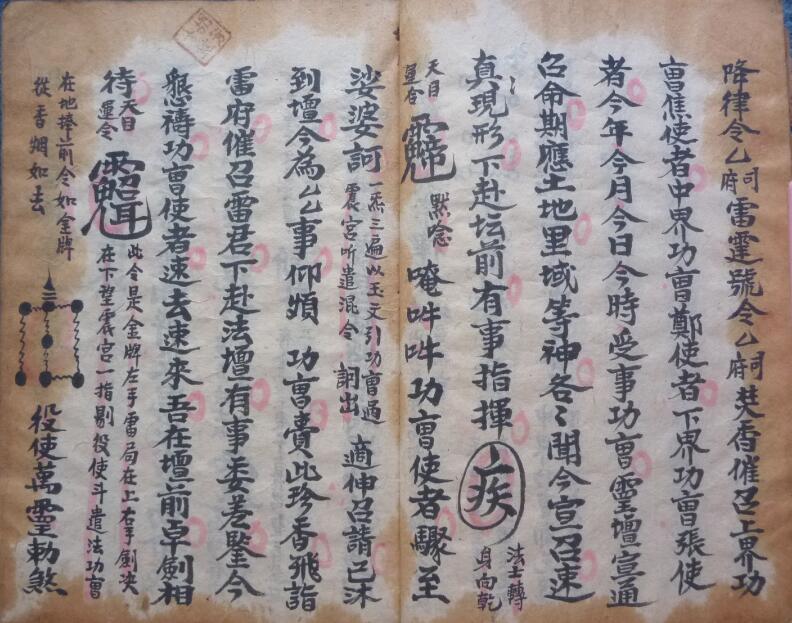 降律令厶司府雷霆號令厶司府焚香催召上界功
曺焦使者中界功曺鄭使者下界功曺張使
者今年今月今日今時受事功曺靈壇宣通
召命期應土地里域等神各〻聞今宣召速
〻真現形下赴坛前有事指揮疾
法士轉
身向乾
天目
運合
默念
唵吽吽功曺使者驟至
娑婆訶
一炁三遍以玉文引功曺過
震宮听遣混合
訶出
適伸召請已沐
到壇今為厶事仰煩 功曺賫此珍香飛詣
雷府催召雷君下赴法壇有事委差鑒今
懇禱功曺使者速去速來吾在壇前卓劍相
待
天目
運令
此令是金牌左手雷局在上右手劍决
在下望震宮一指剔役使斗遣法功曺
在地捧前令如金牌
從香烟如去
役使萬靈勅煞